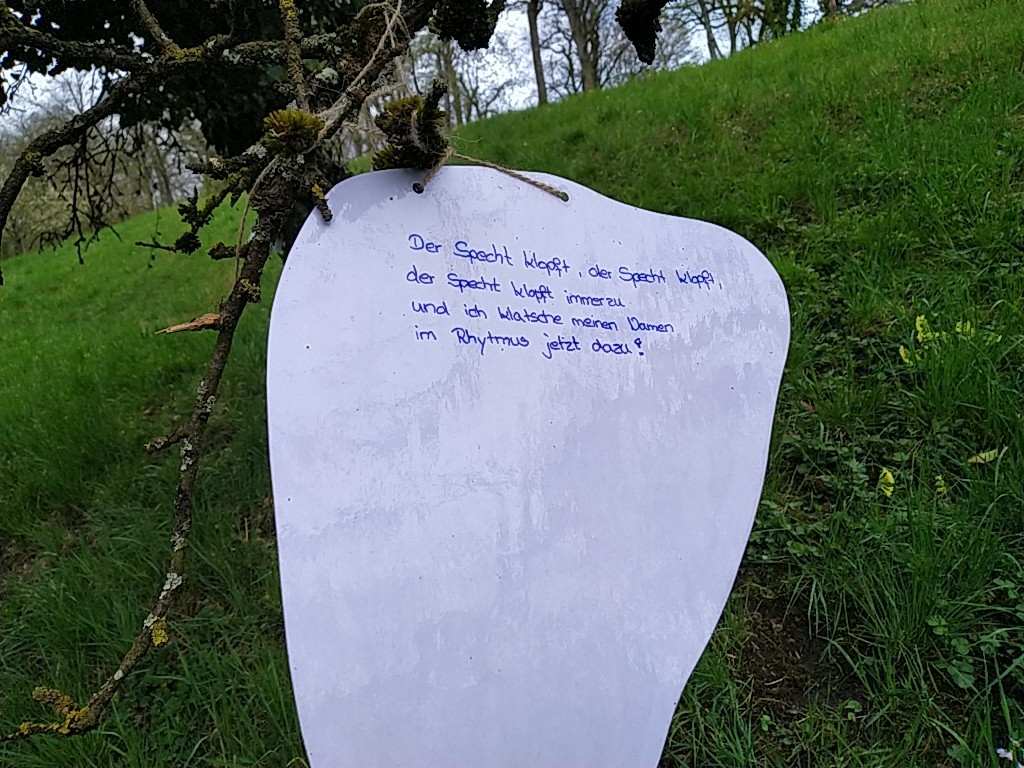 Der Specht klopft, der Specht klopft,
der Specht klopft immerzu
und ich klatsche meinen Damen
im Rhytmus jetzt dazu!